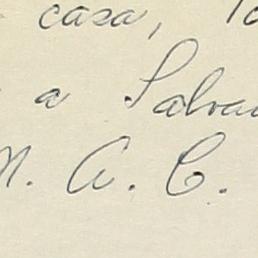 casa,
a Salva
M. A. C.